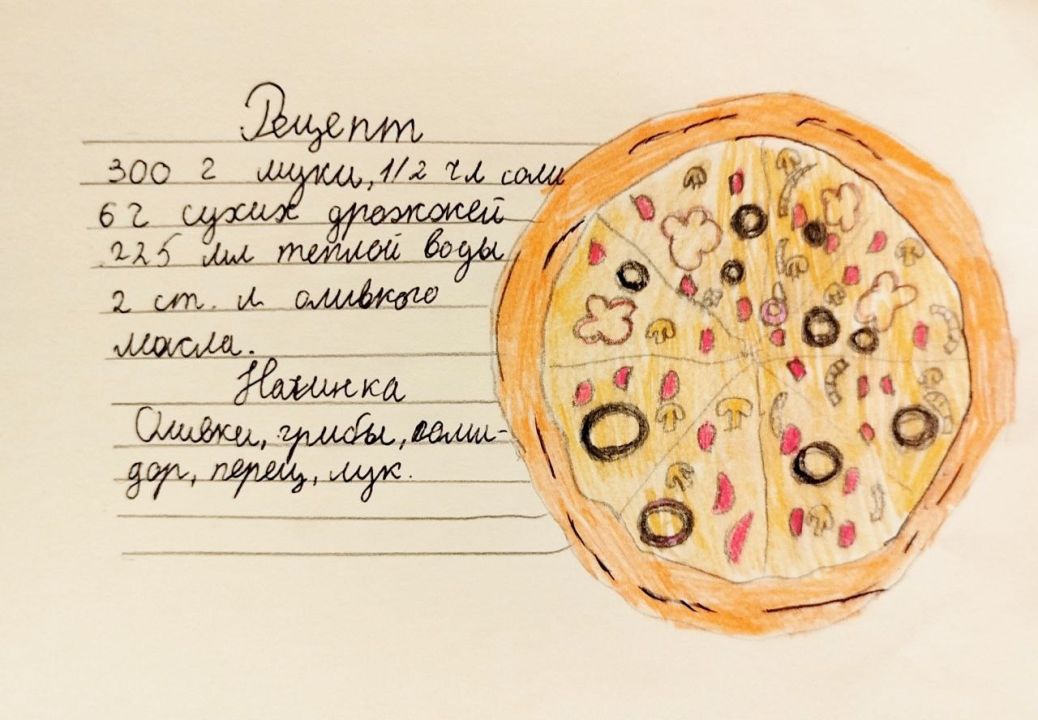 Рецепт
300 г муки, 1/2 ч л соли
6 г сухих дрожжей
225 мл теплой воды
2 ст. л. оливкого
масла.
Начинка
Оливки, грибы, соми-
дор, перец, лук.